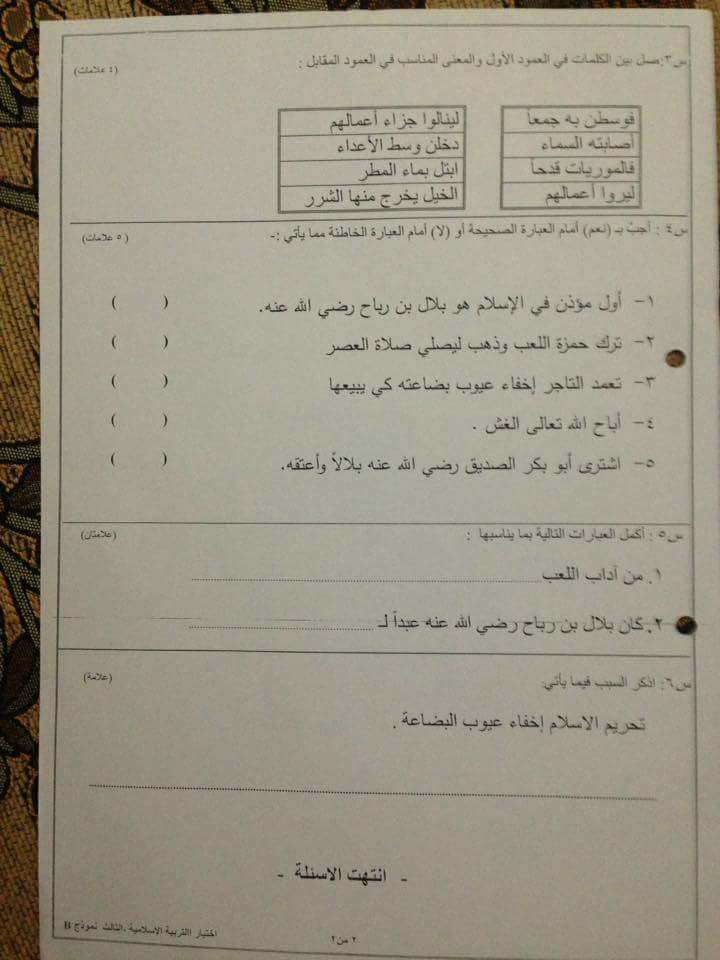 س٣:صل بين الكلمات في العمود الأول والمعنى المناسب في العمود المقابل :
(٤ علامات)
فوسطن به جمعاً
لينالوا جزاء أعمالهم
أصابته السماء
دخلن وسط الأعداء
فالموريات قدحاً
ابتل بماء المطر
ليروا أعمالهم
الخيل يخرج منها الشرر
س٤ : أجبْ بـ (نعم) أمام العبارة الصحيحة أو (لا) أمام العبارة الخاطئة مما يأتي :-
(٥ علامات)
١- أول مؤذن في الإسلام هو بلال بن رباح رضي الله عنه. ( )
٢- ترك حمزة اللعب وذهب ليصلي صلاة العصر ( )
٣- تعمد التاجر إخفاء عيوب بضاعته كي يبيعها ( )
٤- أباح الله تعالى الغش . ( )
٥- اشترى أبو بكر الصديق رضي الله عنه بلالاً وأعتقه. ( )
س٥ : أكمل العبارات التالية بما يناسبها :
(علامتان)
١. من آداب اللعب ........................................
٢. كان بلال بن رباح رضي الله عنه عبداً لـ ........................................
س٦: اذكر السبب فيما يأتي:
(علامة)
تحريم الاسلام إخفاء عيوب البضاعة .
................................................................................
- انتهت الاسئلة -
اختبار االتربية الاسلامية .الثالث نموذج B
٢ من٢